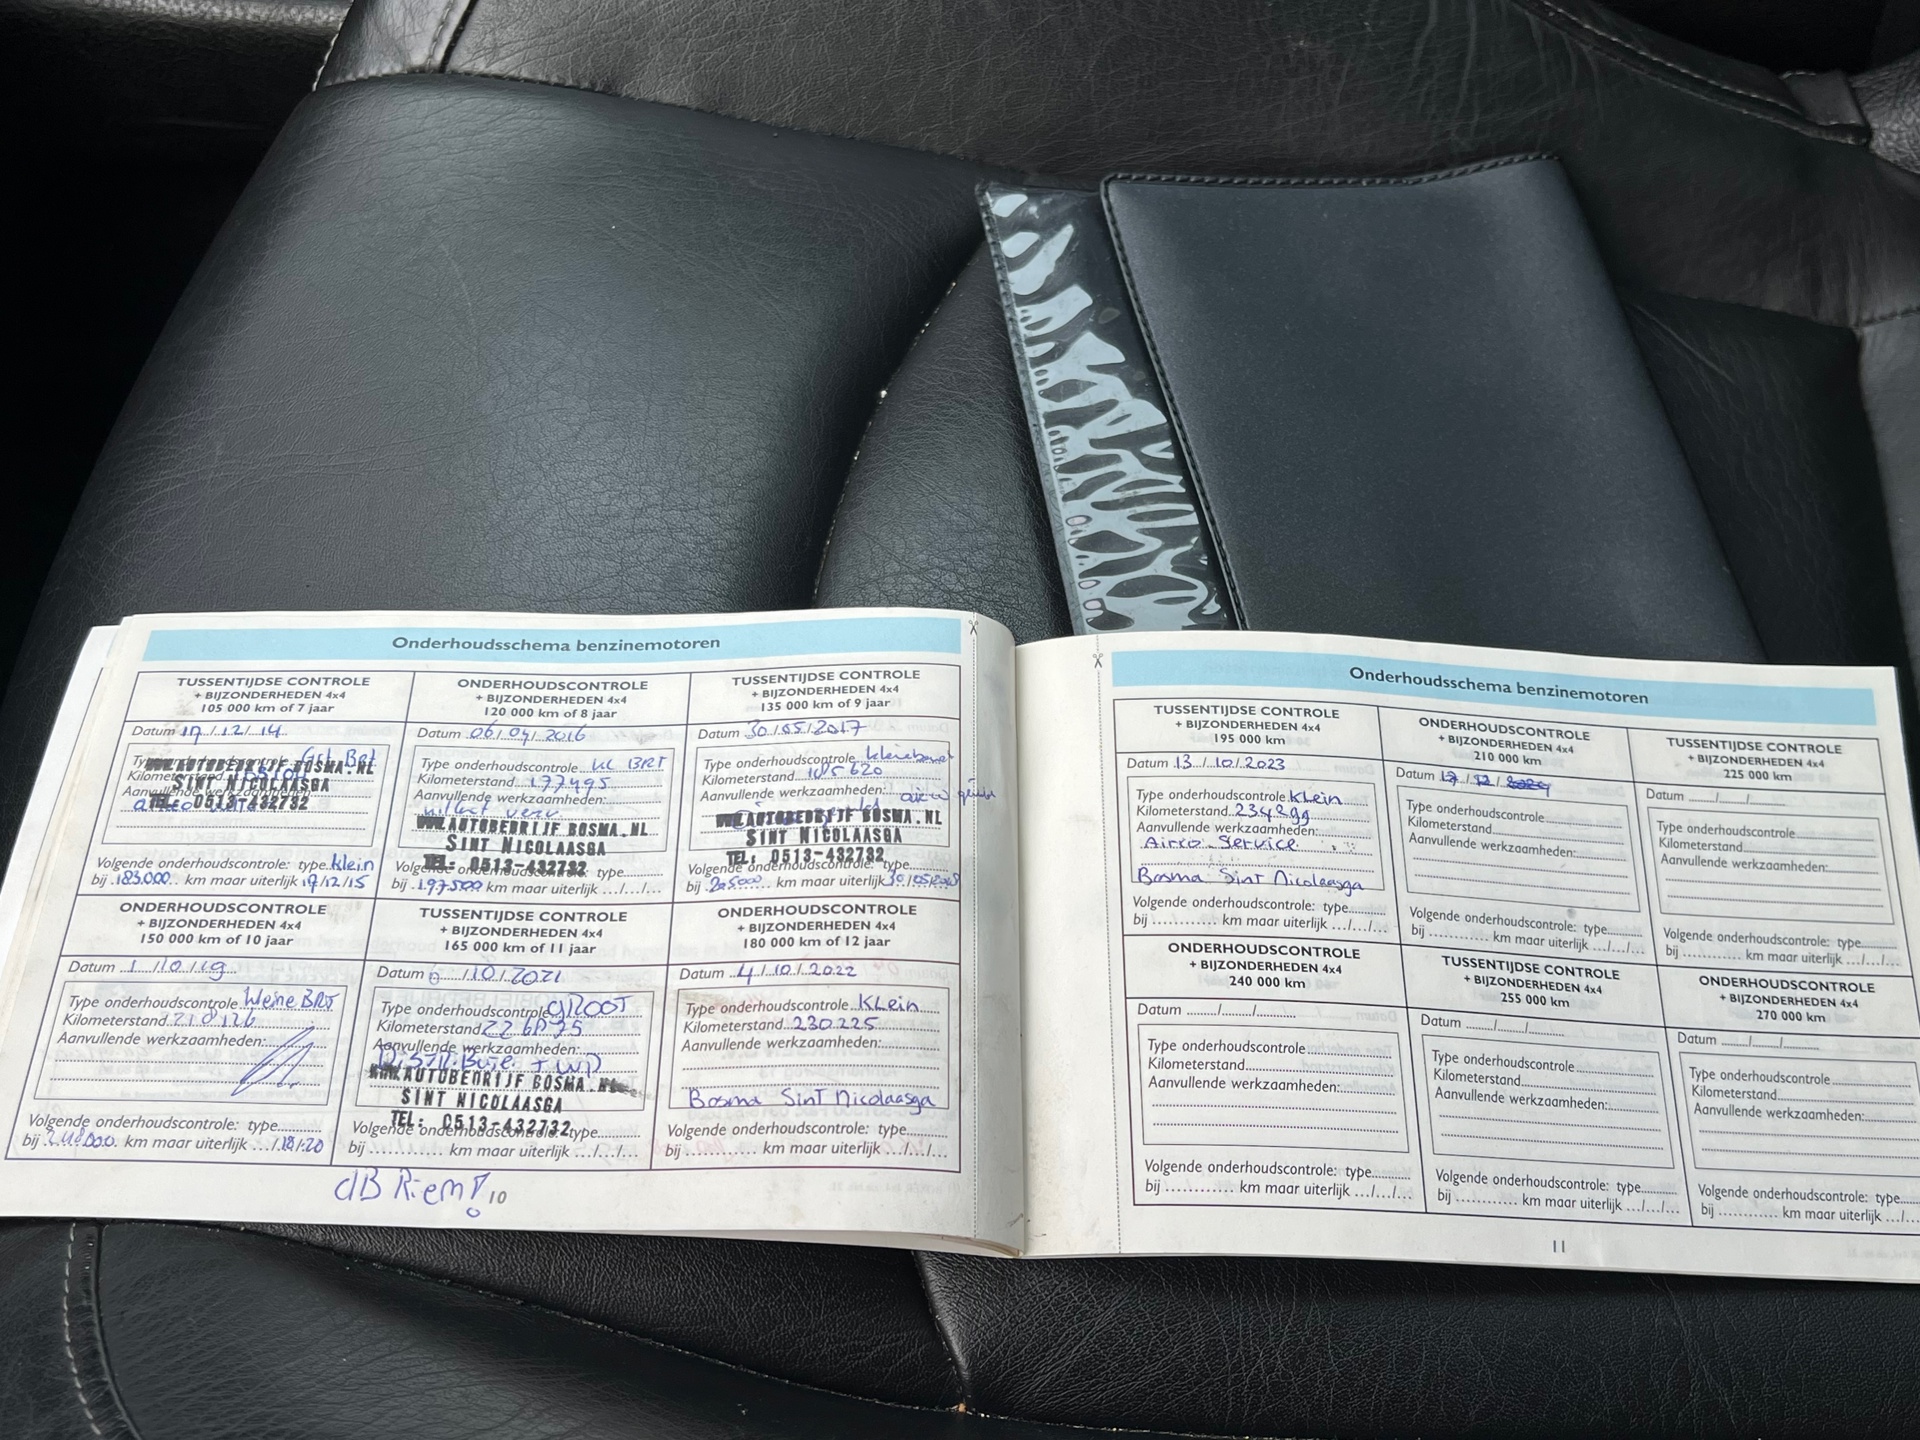 Onderhoudsschema benzinemotoren
TUSSENTIJDSE CONTROLE
+ BIJZONDERHEDEN 4x4
105 000 km of 7 jaar
Datum 17/12/14
Kilometerstand
Aanvullende werkzaamheden:
WWW.AUTOBEDRIJF BOSMA.NL
SINT NICOLAASGA
TEL: 0513-432732
Volgende onderhoudscontrole: type klein
bij 183.000 km maar uiterlijk 17/12/15
ONDERHOUDSCONTROLE
+ BIJZONDERHEDEN 4x4
120 000 km of 8 jaar
Datum 06/04/2016
Type onderhoudscontrole KL BRT
Kilometerstand 177495
Aanvullende werkzaamheden:
WWW.AUTOBEDRIJF BOSMA.NL
SINT NICOLAASGA
TEL: 0513-432732
Volgende onderhoudscontrole: type
bij 197500 km maar uiterlijk .../.../...
TUSSENTIJDSE CONTROLE
+ BIJZONDERHEDEN 4x4
135 000 km of 9 jaar
Datum 30/05/2017
Type onderhoudscontrole kleine
Kilometerstand
Aanvullende werkzaamheden: airco
WWW.AUTOBEDRIJF BOSMA.NL
SINT NICOLAASGA
TEL: 0513-432732
Volgende onderhoudscontrole: type
bij 205000 km maar uiterlijk 30/05/2018
ONDERHOUDSCONTROLE
+ BIJZONDERHEDEN 4x4
150 000 km of 10 jaar
Datum 1/10/19
Type onderhoudscontrole kleine BRT
Kilometerstand 218126
Aanvullende werkzaamheden:
Volgende onderhoudscontrole: type
bij km maar uiterlijk
TUSSENTIJDSE CONTROLE
+ BIJZONDERHEDEN 4x4
165 000 km of 11 jaar
Datum /10/2021
Type onderhoudscontrole GROOT
Kilometerstand
Aanvullende werkzaamheden:
WWW.AUTOBEDRIJF BOSMA.NL
SINT NICOLAASGA
TEL: 0513-432732
Volgende onderhoudscontrole: type
bij .......... km maar uiterlijk .../.../...
ONDERHOUDSCONTROLE
+ BIJZONDERHEDEN 4x4
180 000 km of 12 jaar
Datum 4/10/2022
Type onderhoudscontrole KLein
Kilometerstand 230225
Aanvullende werkzaamheden:
Bosma Sint Nicolaasga
Volgende onderhoudscontrole: type
bij .......... km maar uiterlijk .../.../...
dB Riem!
10
Onderhoudsschema benzinemotoren
TUSSENTIJDSE CONTROLE
+ BIJZONDERHEDEN 4x4
195 000 km
Datum 13/10/2023
Type onderhoudscontrole KLein
Kilometerstand 234299
Aanvullende werkzaamheden:
Airco Service
Bosma Sint Nicolaasga
Volgende onderhoudscontrole: type
bij .......... km maar uiterlijk .../.../...
ONDERHOUDSCONTROLE
+ BIJZONDERHEDEN 4x4
210 000 km
Datum
Type onderhoudscontrole
Kilometerstand
Aanvullende werkzaamheden:
Volgende onderhoudscontrole: type
bij .......... km maar uiterlijk .../.../...
TUSSENTIJDSE CONTROLE
+ BIJZONDERHEDEN 4x4
225 000 km
Datum ....../....../......
Type onderhoudscontrole
Kilometerstand
Aanvullende werkzaamheden:
Volgende onderhoudscontrole: type
bij .......... km maar uiterlijk .../.../...
ONDERHOUDSCONTROLE
+ BIJZONDERHEDEN 4x4
240 000 km
Datum ....../....../......
Type onderhoudscontrole
Kilometerstand
Aanvullende werkzaamheden:
Volgende onderhoudscontrole: type
bij .......... km maar uiterlijk .../.../...
TUSSENTIJDSE CONTROLE
+ BIJZONDERHEDEN 4x4
255 000 km
Datum ....../....../......
Type onderhoudscontrole
Kilometerstand
Aanvullende werkzaamheden:
Volgende onderhoudscontrole: type
bij .......... km maar uiterlijk .../.../...
ONDERHOUDSCONTROLE
+ BIJZONDERHEDEN 4x4
270 000 km
Datum ....../....../......
Type onderhoudscontrole
Kilometerstand
Aanvullende werkzaamheden:
Volgende onderhoudscontrole: type
bij .......... km maar uiterlijk .../.../...
11